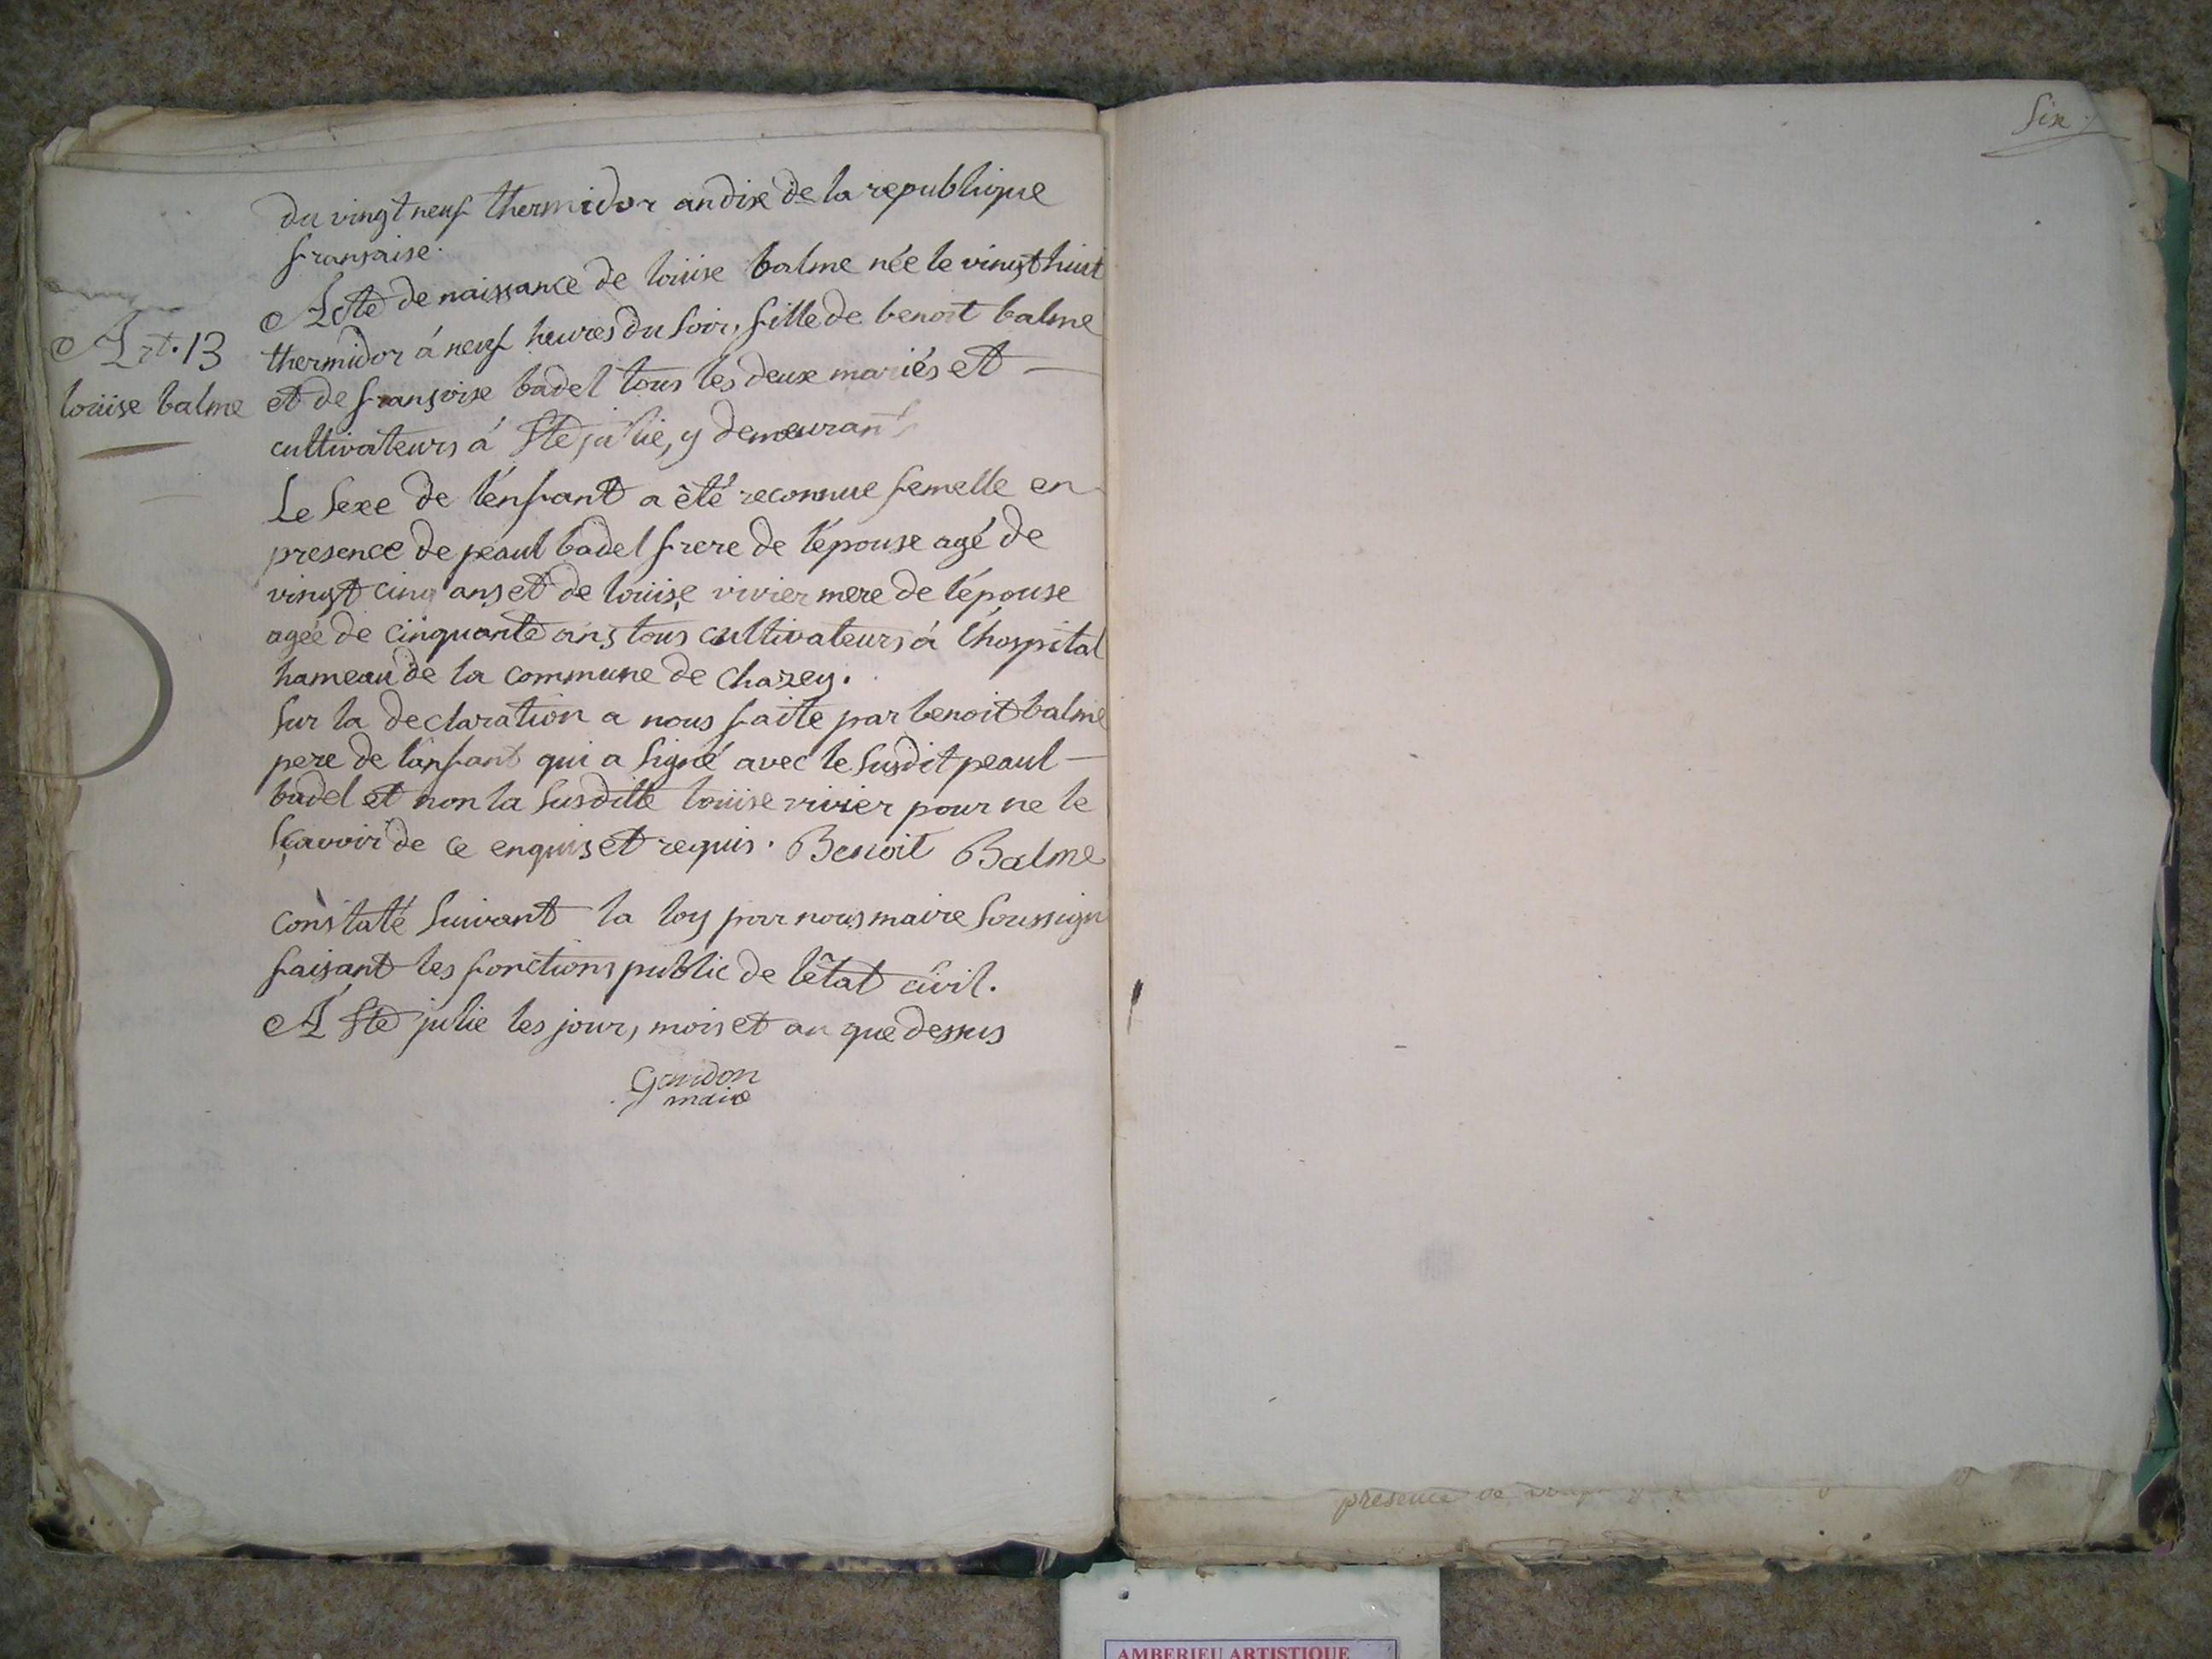 du vingt neuf thermidor an dix de la republique
fransaise.
Acte de naissance de loüise balme née le vingt huit
thermidor á neuf heures du soir, fille de benoit balme
et de fransoise badel tous les deux mariés et —
cultivateurs á Ste julie, y demeurants
Art. 13
loüise balme
Le sexe de lénfant a èté reconnue femelle en
presence de peaul badel frere de lépouse agé de
vingt cinq ans et de loüise vivier mere de lépouse
agée de cinquante ans tous cultivateurs á l'hospital
hameau de la commune de chazey.
sur la declaration a nous faite par benoit balme
pere de lanfant qui a signé avec le susdit peaul —
badel et non la susditte loüise vivier pour ne le
sçavoir de ce enquis et requis. Benoit Balme
constaté suivant la loy par nous maire soussign
faisant les fonctions public de lêtat civil.
A Ste julie les jour, mois et an que dessus
maire
six.
presence de
AMBERIEU ARTISTIQUE